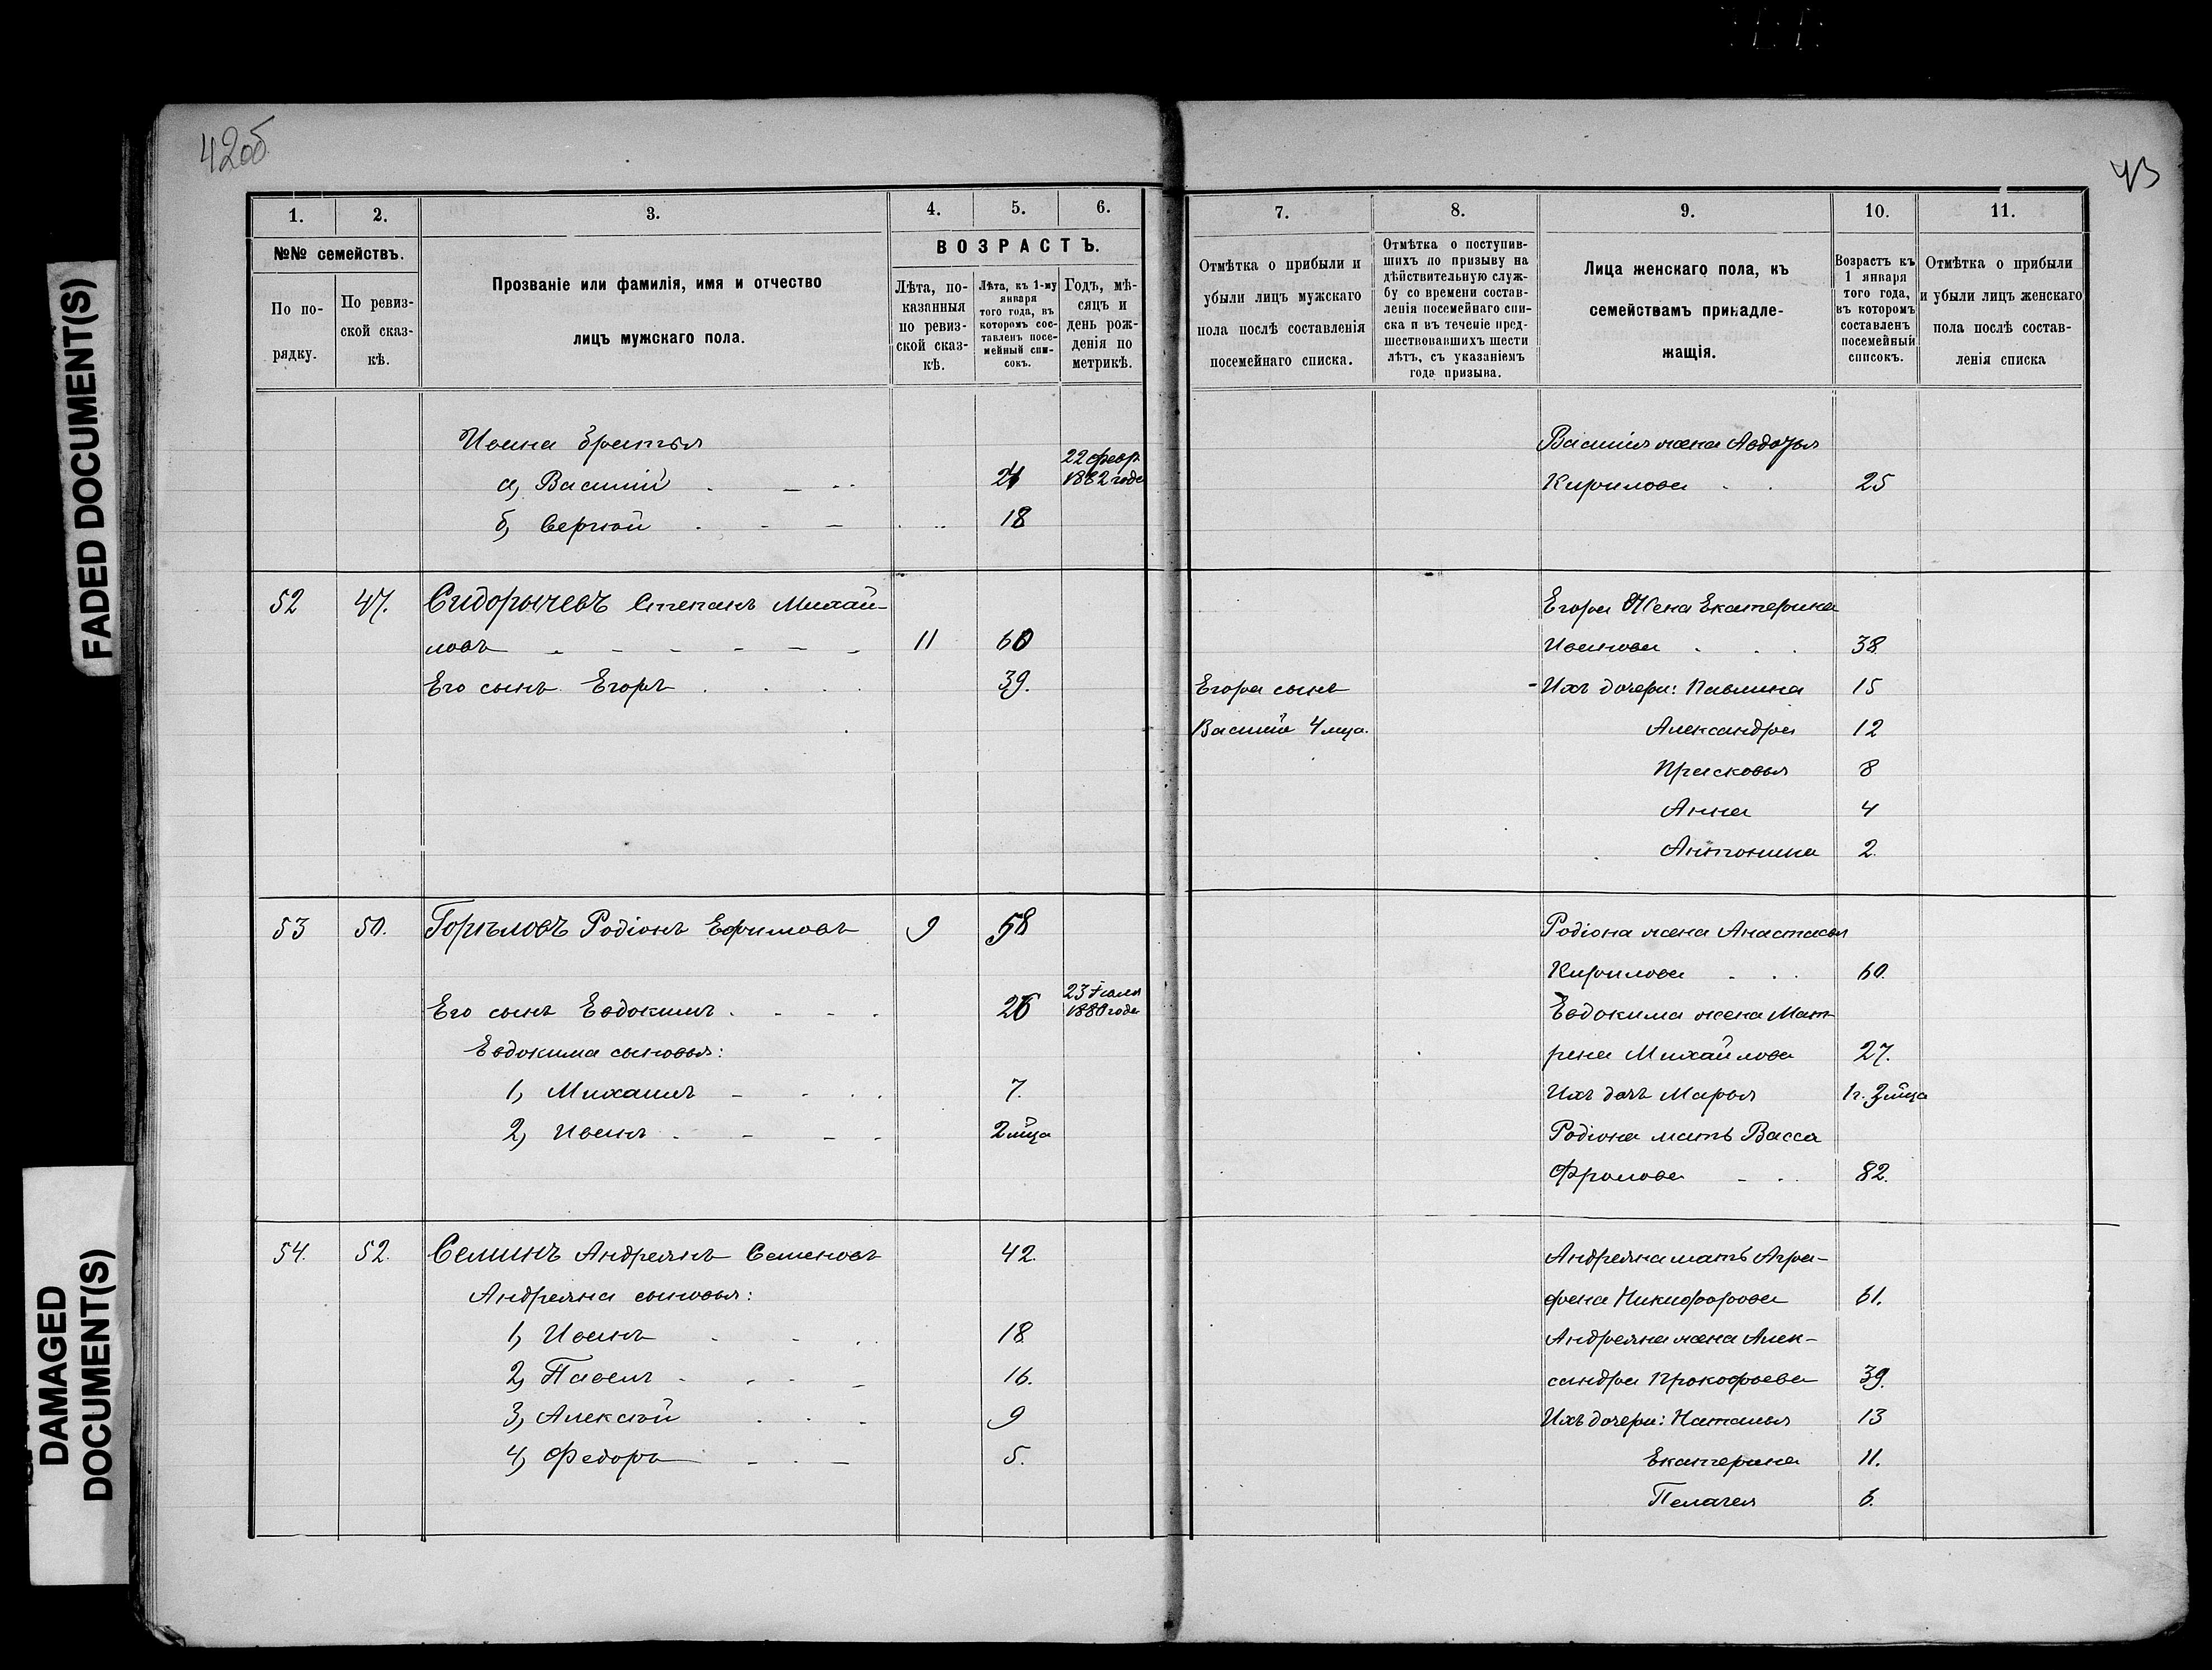 42об
43
FADED DOCUMENT(S)
DAMAGED
DOCUMENT(S)
1.
2.
3.
4.
5.
6.
№№ семействъ.
ВОЗРАСТЪ.
По по-
рядку.
По ревиз-
ской сказ-
кѣ.
Прозваніе или фамилія, имя и отчество
лицъ мужскаго пола.
Лѣта, по-
казанныя
по ревиз-
ской сказ-
кѣ.
Лѣта, къ 1-му
января
того года, въ
которомъ сос-
тавленъ посе-
мейный спи-
сокъ.
Годъ, мѣ-
сяцъ и
день рож-
денія по
метрикѣ.
7.
8.
9.
10.
11.
Отмѣтка о прибыли и
убыли лицъ мужскаго
пола послѣ составленія
посемейнаго списка.
Отмѣтка о поступив-
шихъ по призыву на
дѣйствительную служ-
бу со времени состав-
ленія посемейнаго спи-
ска и въ теченіе пред-
шествовавшихъ шести
лѣтъ, съ указаніемъ
года призыва.
Лица женскаго пола, къ
семействамъ принадле-
жащія.
Возрастъ къ
1 января
того года,
въ которомъ
составленъ
посемейный
списокъ.
Отмѣтка о прибыли
и убыли лицъ женскаго
пола послѣ состав-
ленія списка
Ивана братья
а) Василій 22 февр.
1882 года
б) Сергѣй 18
Василія жена Авдотья
Кирилова 25
52 47. Сидорычевъ Степанъ Михай-
ловъ 11 60
Его сынъ Егоръ 39.
Егора сынъ
Василій 4 мца.
Егора Жена Екатерина
Иванова 38
Ихъ дочери: Павлина 15
Александра 12
Прасковья 8
Анна 4
Антонина 2.
53 50. Горѣловъ Родіонъ Ефимовъ 9 58
Его сынъ Евдокимъ 23 Іюля
1880 года
Евдокима сыновья:
1, Михаилъ 7.
2, Иванъ 2 мца
Родіона жена Анастасья
Кирилова 60.
Евдокима жена Мат-
рена Михайлова 27.
Ихъ дочь Марья 1 г. 2 мца
Родіона мать Васса
Фролова 82.
54. 52. Селинъ Андреянъ Семеновъ 42.
Андреяна сыновья:
1, Иванъ 18
2, Павелъ 16.
3, Алексѣй 9
4, Федоръ 5.
Андреяна мать Агра-
фена Никифорова 61.
Андреяна жена Алек-
сандра Прокофьева 39.
Ихъ дочери: Наталья 13
Екатерина 11.
Пелагея 6.